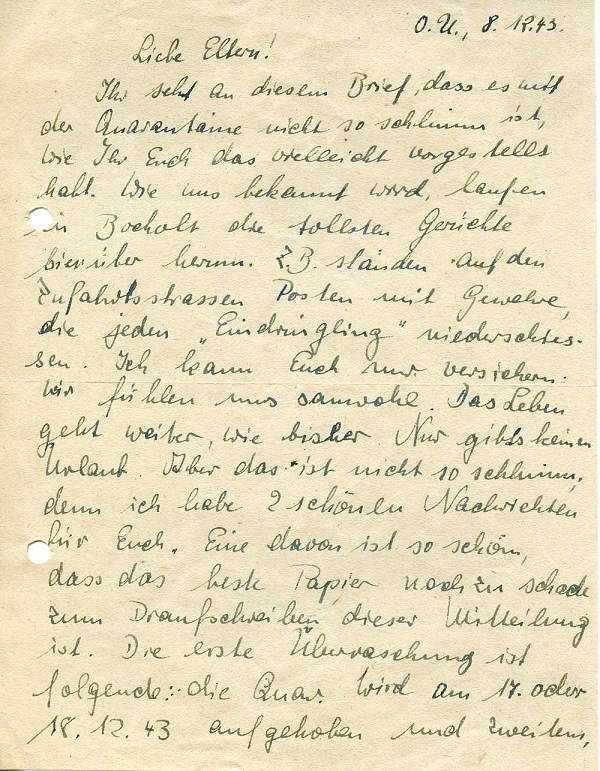 O.U., 8. 12.43.
Liebe Eltern!
Ihr seht an diesem Brief, dass es mit
der Quarantaine nicht so schlimm ist,
wie Ihr Euch das vielleicht vorgestellt
habt. Wie uns bekannt wird, laufen
in Bocholt die tollsten Gerüchte
hierüber herum. Z.B. ständen auf den
Zufahrtsstrassen Posten mit Gewehre,
die jeden „Eindringling" niederschies-
sen. Ich kann Euch nur versichern:
wir fühlen uns sauwohl. Das Leben
geht weiter, wie bisher. Nur gibts keinen
Urlaub. Aber das ist nicht so schlimm,
denn ich habe 2 schönen Nachrichten
für Euch. Eine davon ist so schön,
dass das beste Papier noch zu schade
zum Draufschreiben dieser Mitteilung
ist. Die erste Überraschung ist
folgende: die Quar. wird am 17. oder
18. 12. 43 aufgehoben und zweitens,